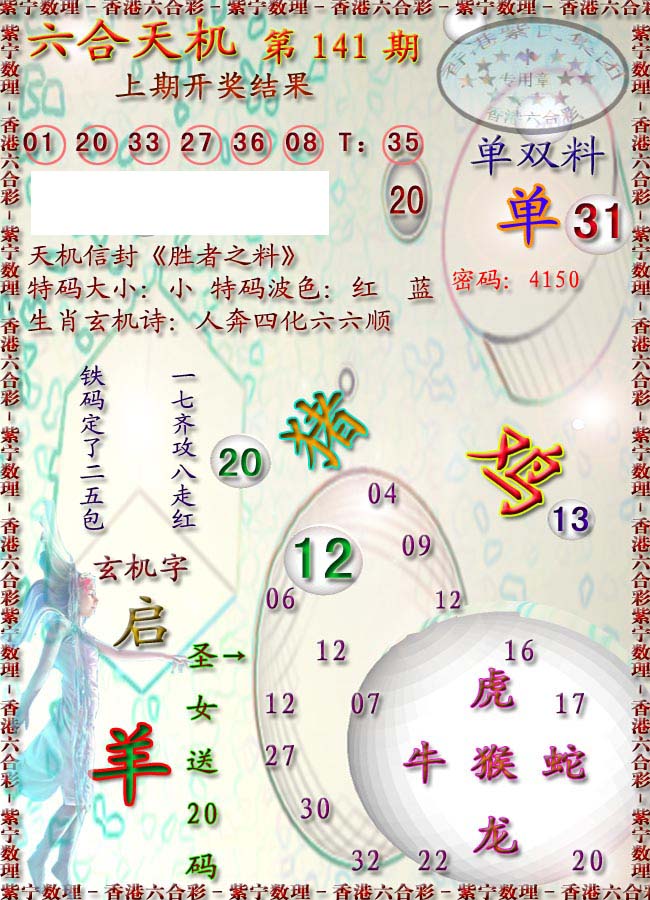 紫宁数理－香港六合彩－紫宁数理－香港六合彩－紫宁数理－香港六合彩
六合天机 第 141 期
香港紫宁集团
专用章
香港六合彩
上期开奖结果
01 20 33 27 36 08 T: 35
20
单双料
单 31
天机信封《胜者之料》
特码大小: 小 特码波色: 红 蓝
密码: 4150
生肖玄机诗: 人奔四化六六顺
一七齐攻八走红
铁码定了二五包
20
猪
鸡
13
04
12
09
玄机字
启
06
12
圣女送20码
→
12
16
羊
12
07
虎
17
27
牛 猴 蛇
30
龙
32
22
20
紫宁数理－香港六合彩－紫宁数理－香港六合彩－紫宁数理－香港六合彩